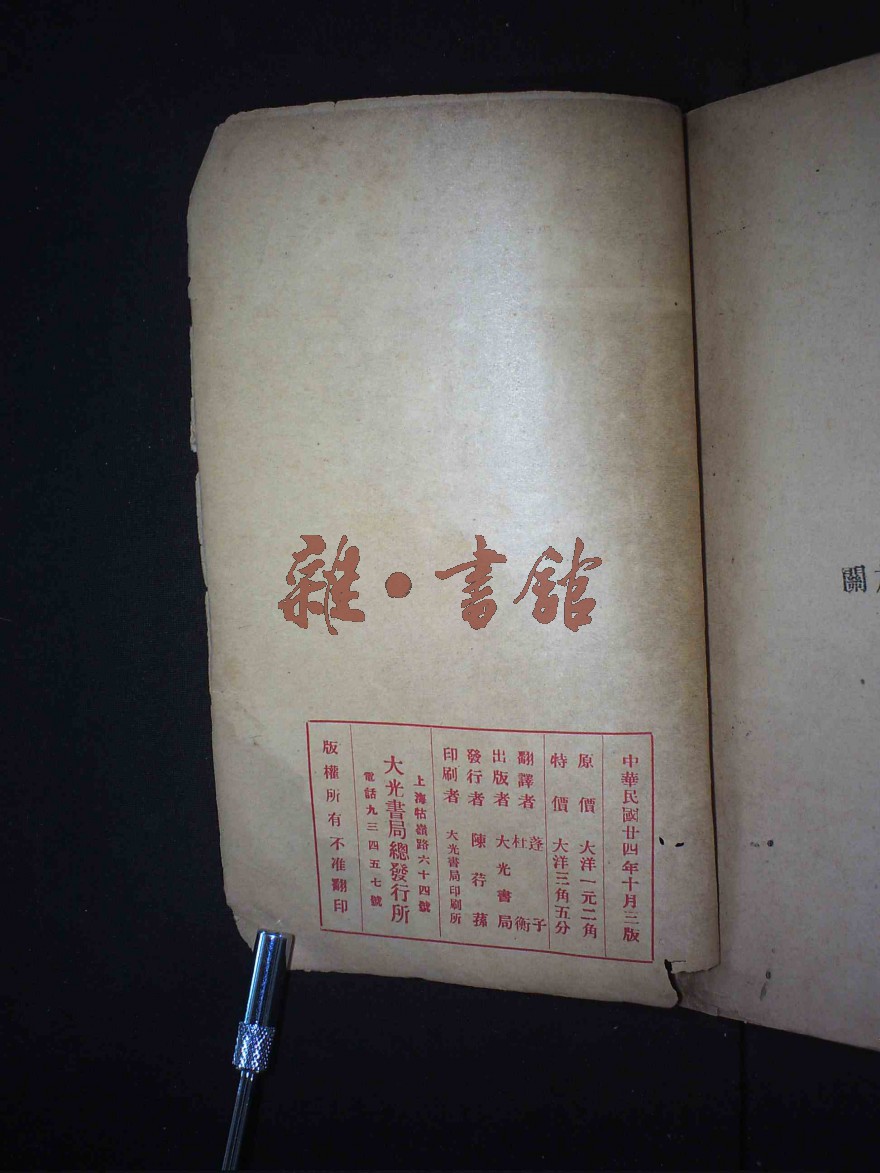 雜·書館
中華民國廿四年十月三版
原價 大洋一元二角
特價 大洋三角五分
翻譯者 蓬子 杜衡
出版者 大光書局
發行者 陳荇蓀
印刷者 大光書局印刷所
上海牯嶺路六十四號
大光書局總發行所
電話九三四五七號
版權所有不准翻印
關